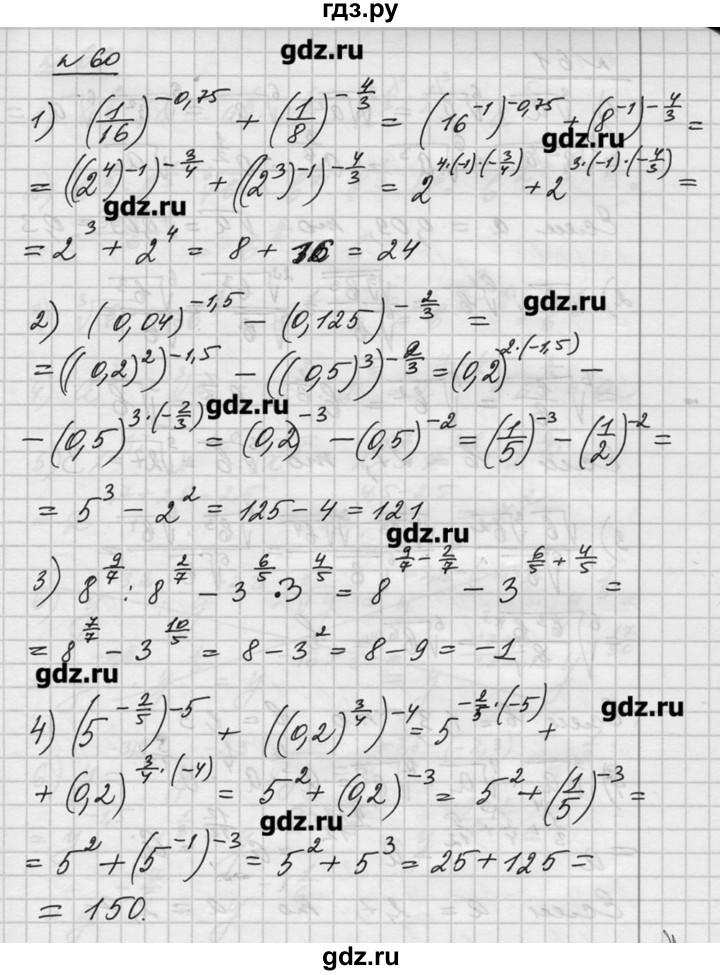 гдз.ру
№ 60
gdz.ru
1) (1/16)^{-0,75} + (1/8)^{-4/3} = (16^{-1})^{-0,75} + (8^{-1})^{-4/3} =
gdz.ru
= ((2^4)^{-1})^{-3/4} + ((2^3)^{-1})^{-4/3} = 2^{4·(-1)·(-3/4)} + 2^{3·(-1)·(-4/3)} =
gdz.ru
= 2^3 + 2^4 = 8 + 16 = 24
gdz.ru
2) (0,04)^{-1,5} - (0,125)^{-2/3} =
= ((0,2)^2)^{-1,5} - ((0,5)^3)^{-2/3} = (0,2)^{2·(-1,5)} -
gdz.ru
- (0,5)^{3·(-2/3)} = (0,2)^{-3} - (0,5)^{-2} = (1/5)^{-3} - (1/2)^{-2} =
= 5^3 - 2^2 = 125 - 4 = 121
gdz.ru
3) 8^{9/7} : 8^{2/7} - 3^{6/5} · 3^{4/5} = 8^{9/7 - 2/7} - 3^{6/5 + 4/5} =
= 8^{7/7} - 3^{10/5} = 8 - 3^2 = 8 - 9 = -1
gdz.ru
gdz.ru
4) (5^{-2/5})^{-5} + ((0,2)^{3/4})^{-4} = 5^{-2/5·(-5)} +
+ (0,2)^{3/4·(-4)} = 5^2 + (0,2)^{-3} = 5^2 + (1/5)^{-3} =
gdz.ru
= 5^2 + (5^{-1})^{-3} = 5^2 + 5^3 = 25 + 125 =
= 150.
gdz.ru